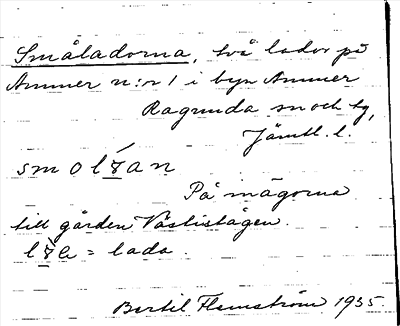 Småladorna, två lador på
Ammer n:r 1 i byn Ammer
Ragunda sn och tg,
Jämtl. l.
smol
På mägorna
till gården
= lada.
Bertil Flemström 1935.